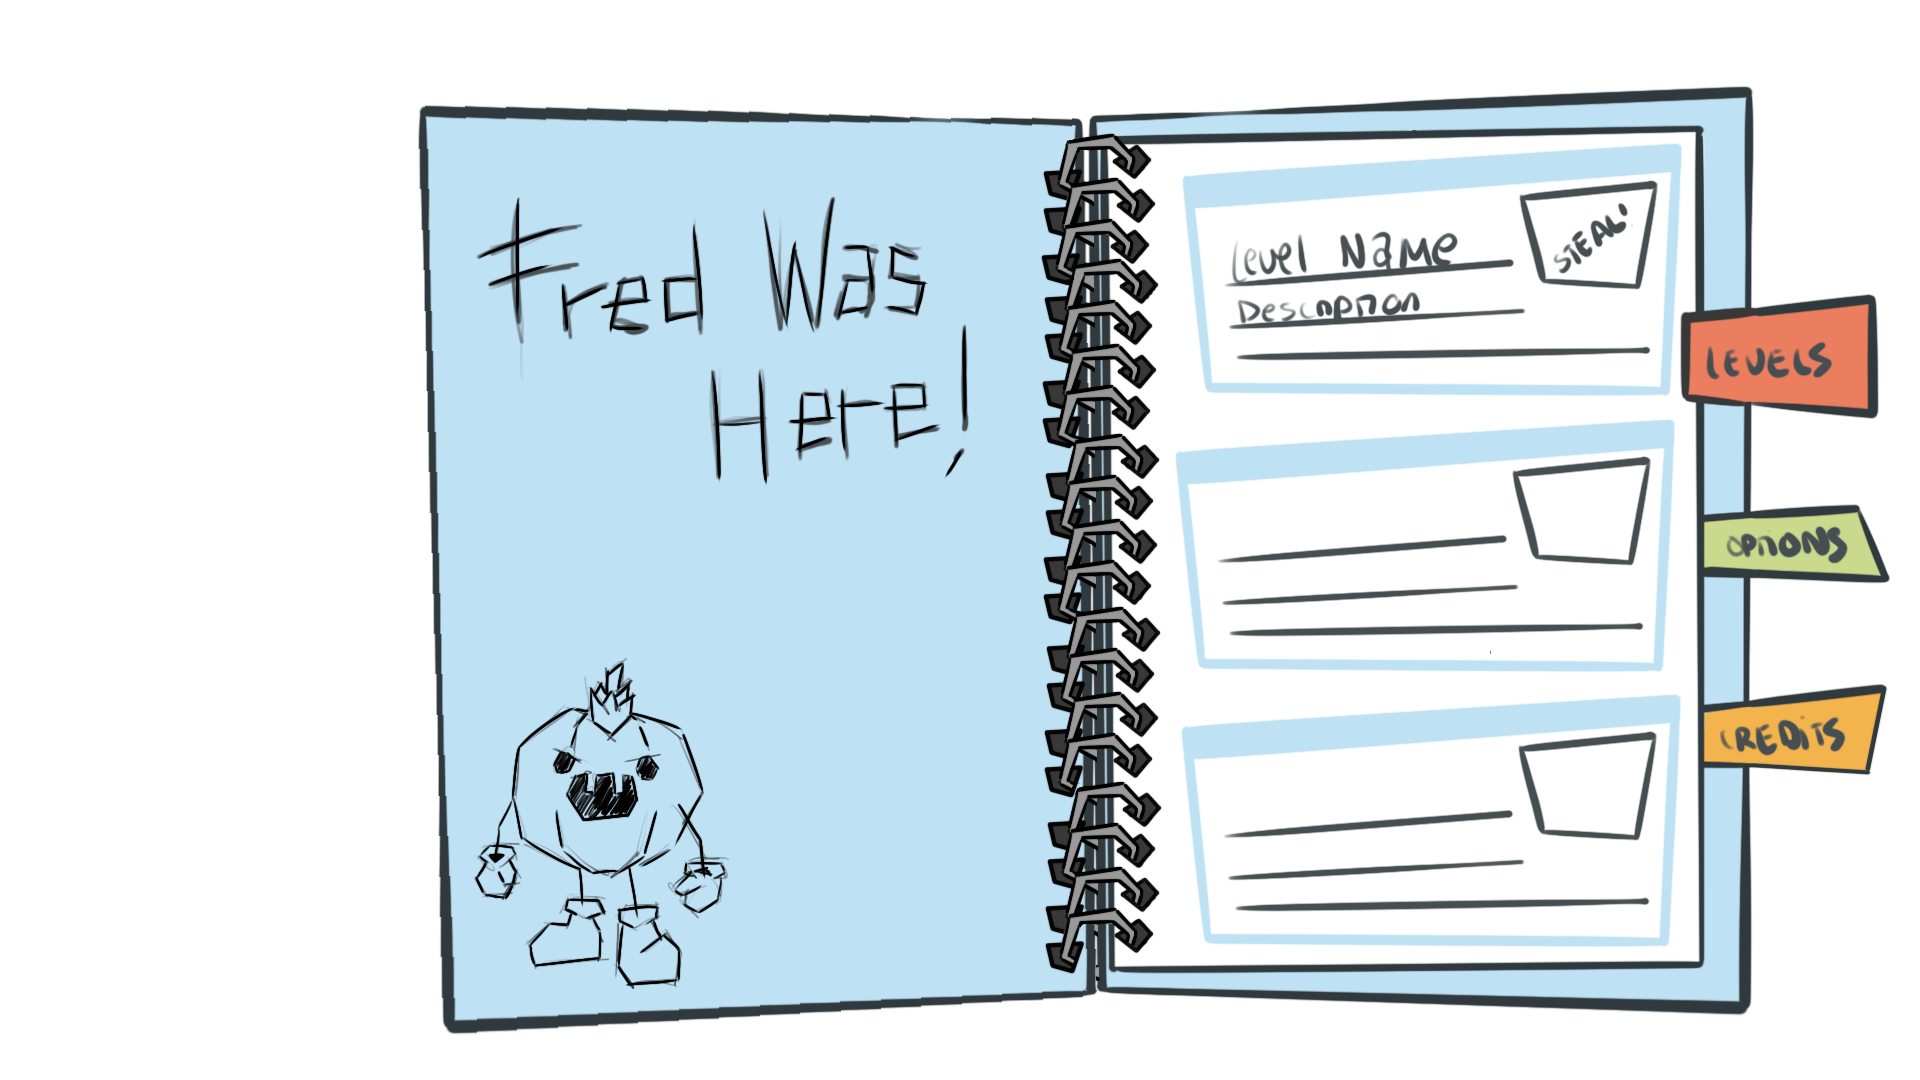 Fred Was
Here!
Level Name
Description
STEAL!
LEVELS
OPTIONS
CREDITS